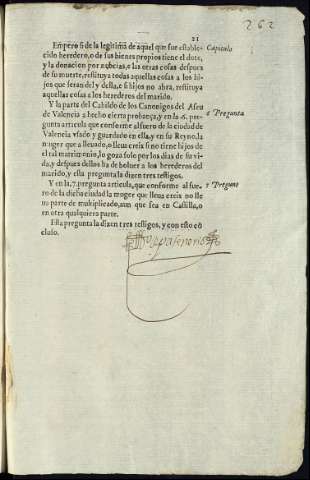 262
21
Empero si de la legitima de aquel que fue estable- Capitulo
cido heredero, o de sus bienes propios tiene el dote,
y la donacion por nubcias, e las otras cosas despues
de su muerte, restituya todas aquellas cosas a los hi-
jos que seran del y della, e si hijos no abra, restituya
aquellas cosas a los herederos del marido.
Y la parte del Cabildo de los Canonigos del Aseu
de Valencia a hecho cierta probança, y en la .6. pre- 6 Pregunta
gunta articula que conforme al fuero de la ciudad de
Valencia vsado y guardado en ella, y en su Reyno, la
muger que a lleuado, o lleua creix si no tiene hijos de
el tal matrimonio, lo goza solo por los dias de su vi-
da, y despues dellos ha de boluer a los herederos del
marido, y esta pregunta la dizen tres testigos.
Y en la, 7. pregunta articula, que conforme al fue- 7 Pregunt
ro de la dicha ciudad la muger que lleua creix no lle
ua parte de multiplicado, aun que sea en Castilla, o
en otra qualquiera parte.
Esta pregunta la dizen tres testigos, y con esto cō
cluso.